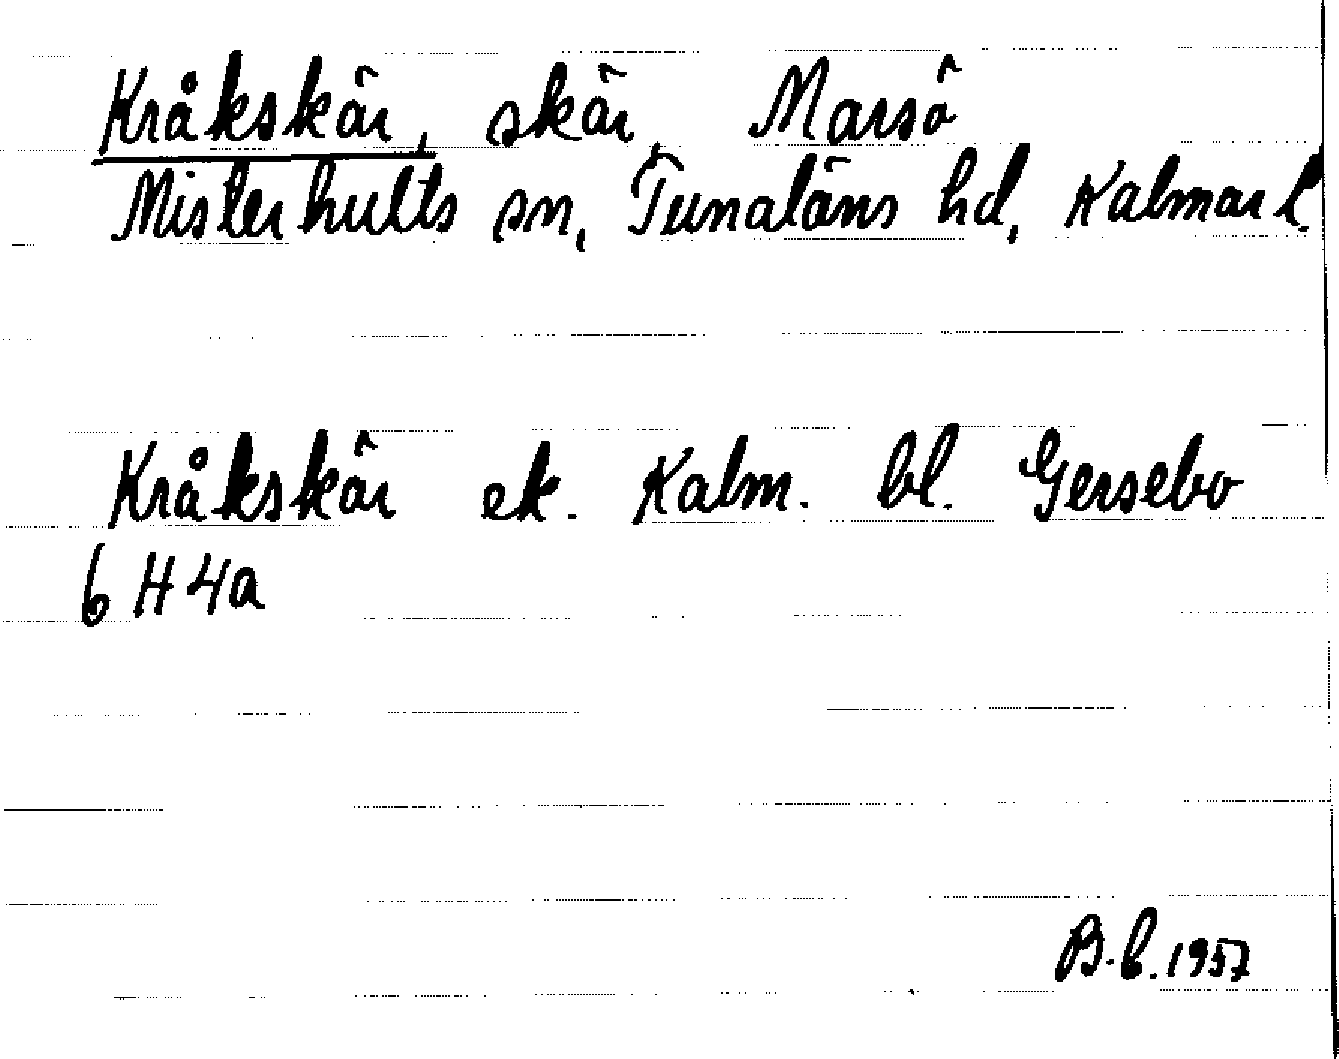 Kråkskär, skär, Marsö
Misterhults sn, Tunaläns hd, Kalmar l.
Kråkskär ek. Kalm. bl. Gersebo
6 H 4a
B.b. 1957